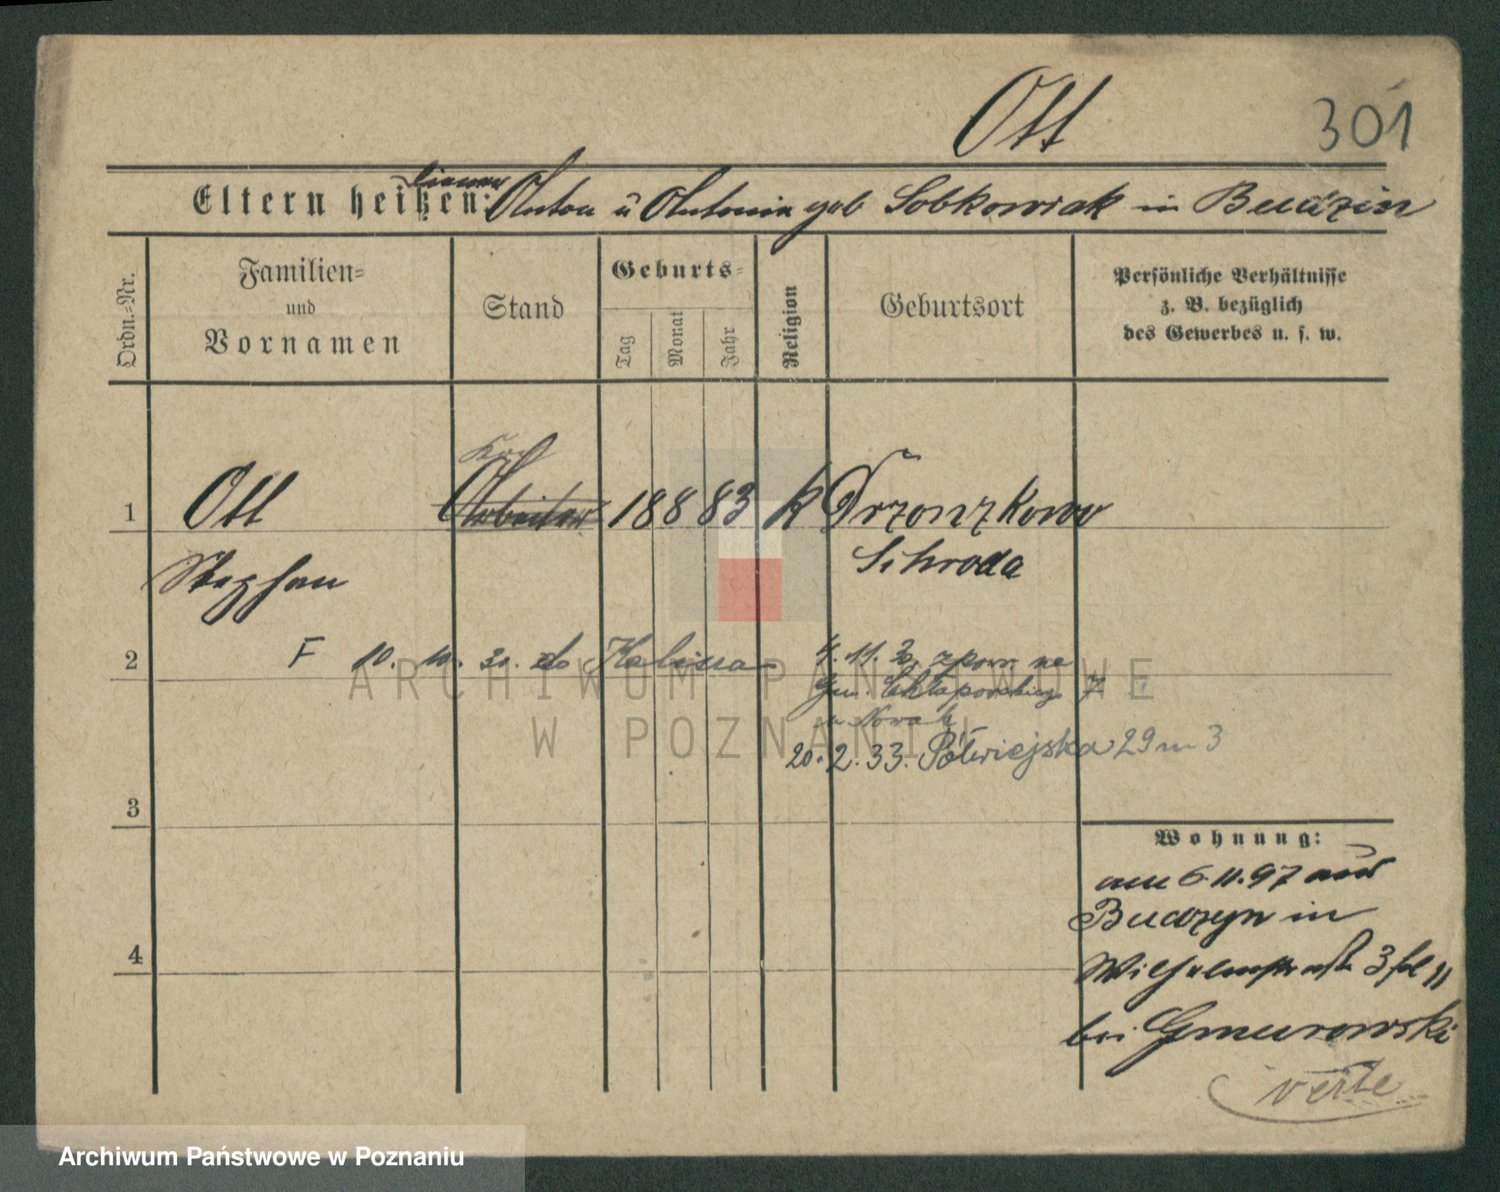 Ott
301
Eltern heißen: Anton u Antonia geb Sobkowiak in Budzin
Ordn.-Nr.
Familien-
und
Vornamen
Stand
Geburts-
Tag
Monat
Jahr
Religion
Geburtsort
Persönliche Verhältnisse
z. B. bezüglich
des Gewerbes u. s. w.
1
Ott
Arbeiter
18 8 83
k
Drzonzkowo
Schroda
Stephan
2
F 10. 10. 30. do
4. 11. 30. zpow. na
Gen. Chłapowskiego 7
u Nowak
20. 2. 33. Półwiejska 29 m 3
3
Wohnung:
am 6.11.97 aus
Budzyn in
Wilhelmstr 3
4
bei Gmurowski
verte
ARCHIWUM PAŃSTWOWE
W POZNANIU
Archiwum Państwowe w Poznaniu